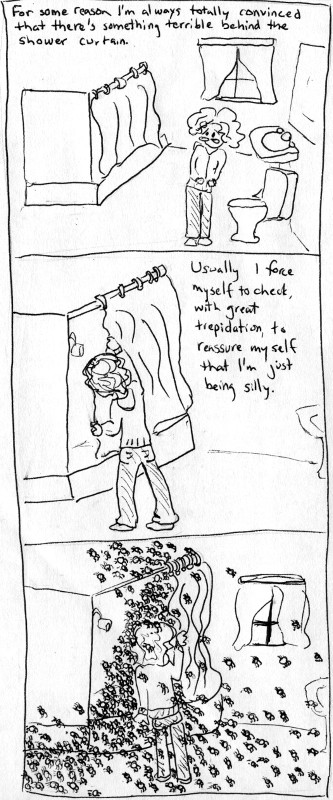 For some reason I'm always totally convinced
that there's something terrible behind the
shower curtain.
Usually I force
myself to check,
with great
trepidation, to
reassure myself
that I'm just
being silly.